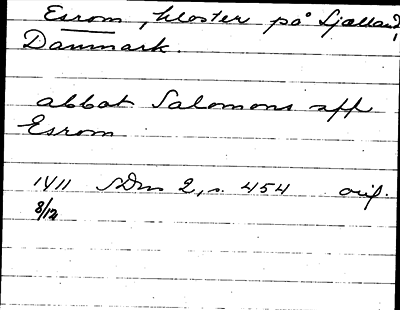 Esrom, kloster på Sjælland,
Danmark.
abbat Salomons aff
Esrom
1411 SDm 2, s. 454 orig.
8/12